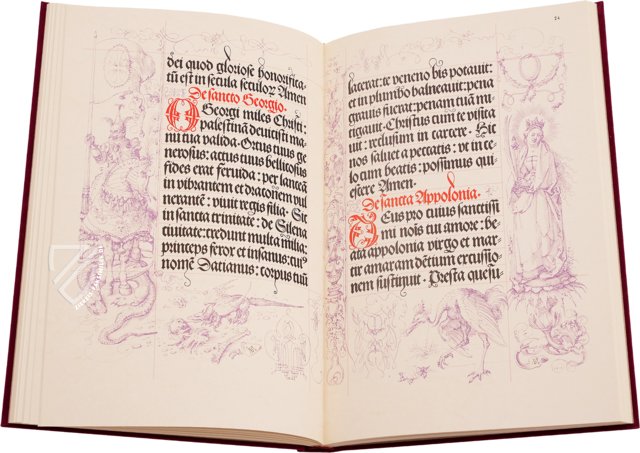 dei quod gloriose honorifica
tũ est in secula seculoꝝ Amen
De sancto Georgio.
O Georgi miles Christi:
palestinã deuicisti ma⸗
nu tua valida. Ortus tuus ge⸗
nerosus: actus tuus bellicosus
fides erat feruida: per lanceã
in vibrantem et draconem vul
nerantẽ: viuit regis filia. Sit
in sancta trinitate: de Silena
ciuitate: credunt multa milia:
princeps feror et insanus: cui9
nomẽ Dacianus: corpus tuũ
24
lacerat: te veneno bis potauit:
et in plumbo balneauit: pena
grauius fuerat: penam tuã mi
tigauit. Christus cum te visita
uit: reclusum in carcere. Hic
nos saluet a peccatis: vt in ce⸗
lo cum beatis: possimus qui⸗
escere Amen.
De sancta Appolonia.
Deus pro cuius sanctissi
mi nois tui amore: be⸗
ata appolonia virgo et mar⸗
tir amaram dẽtium excussio⸗
nem sustinuit. Presta quesu⸗